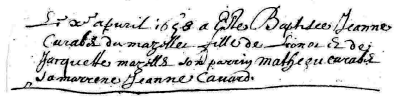 Le x^e apvril 1658 a Este Baptisee Jeanne
Curabet du mazellet fille de Lionar et de
Jarquete mazelle son parrin matheu curabet
sa marrene Jeanne Cavard.